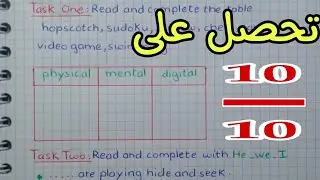 Task One: Read and complete the table
hopscotch, sudoku,
video game, swi
تحصل على
10
10
physical mental digital
Task Two: Read and complete with He_we_I
• ..... are playing hide and seek.